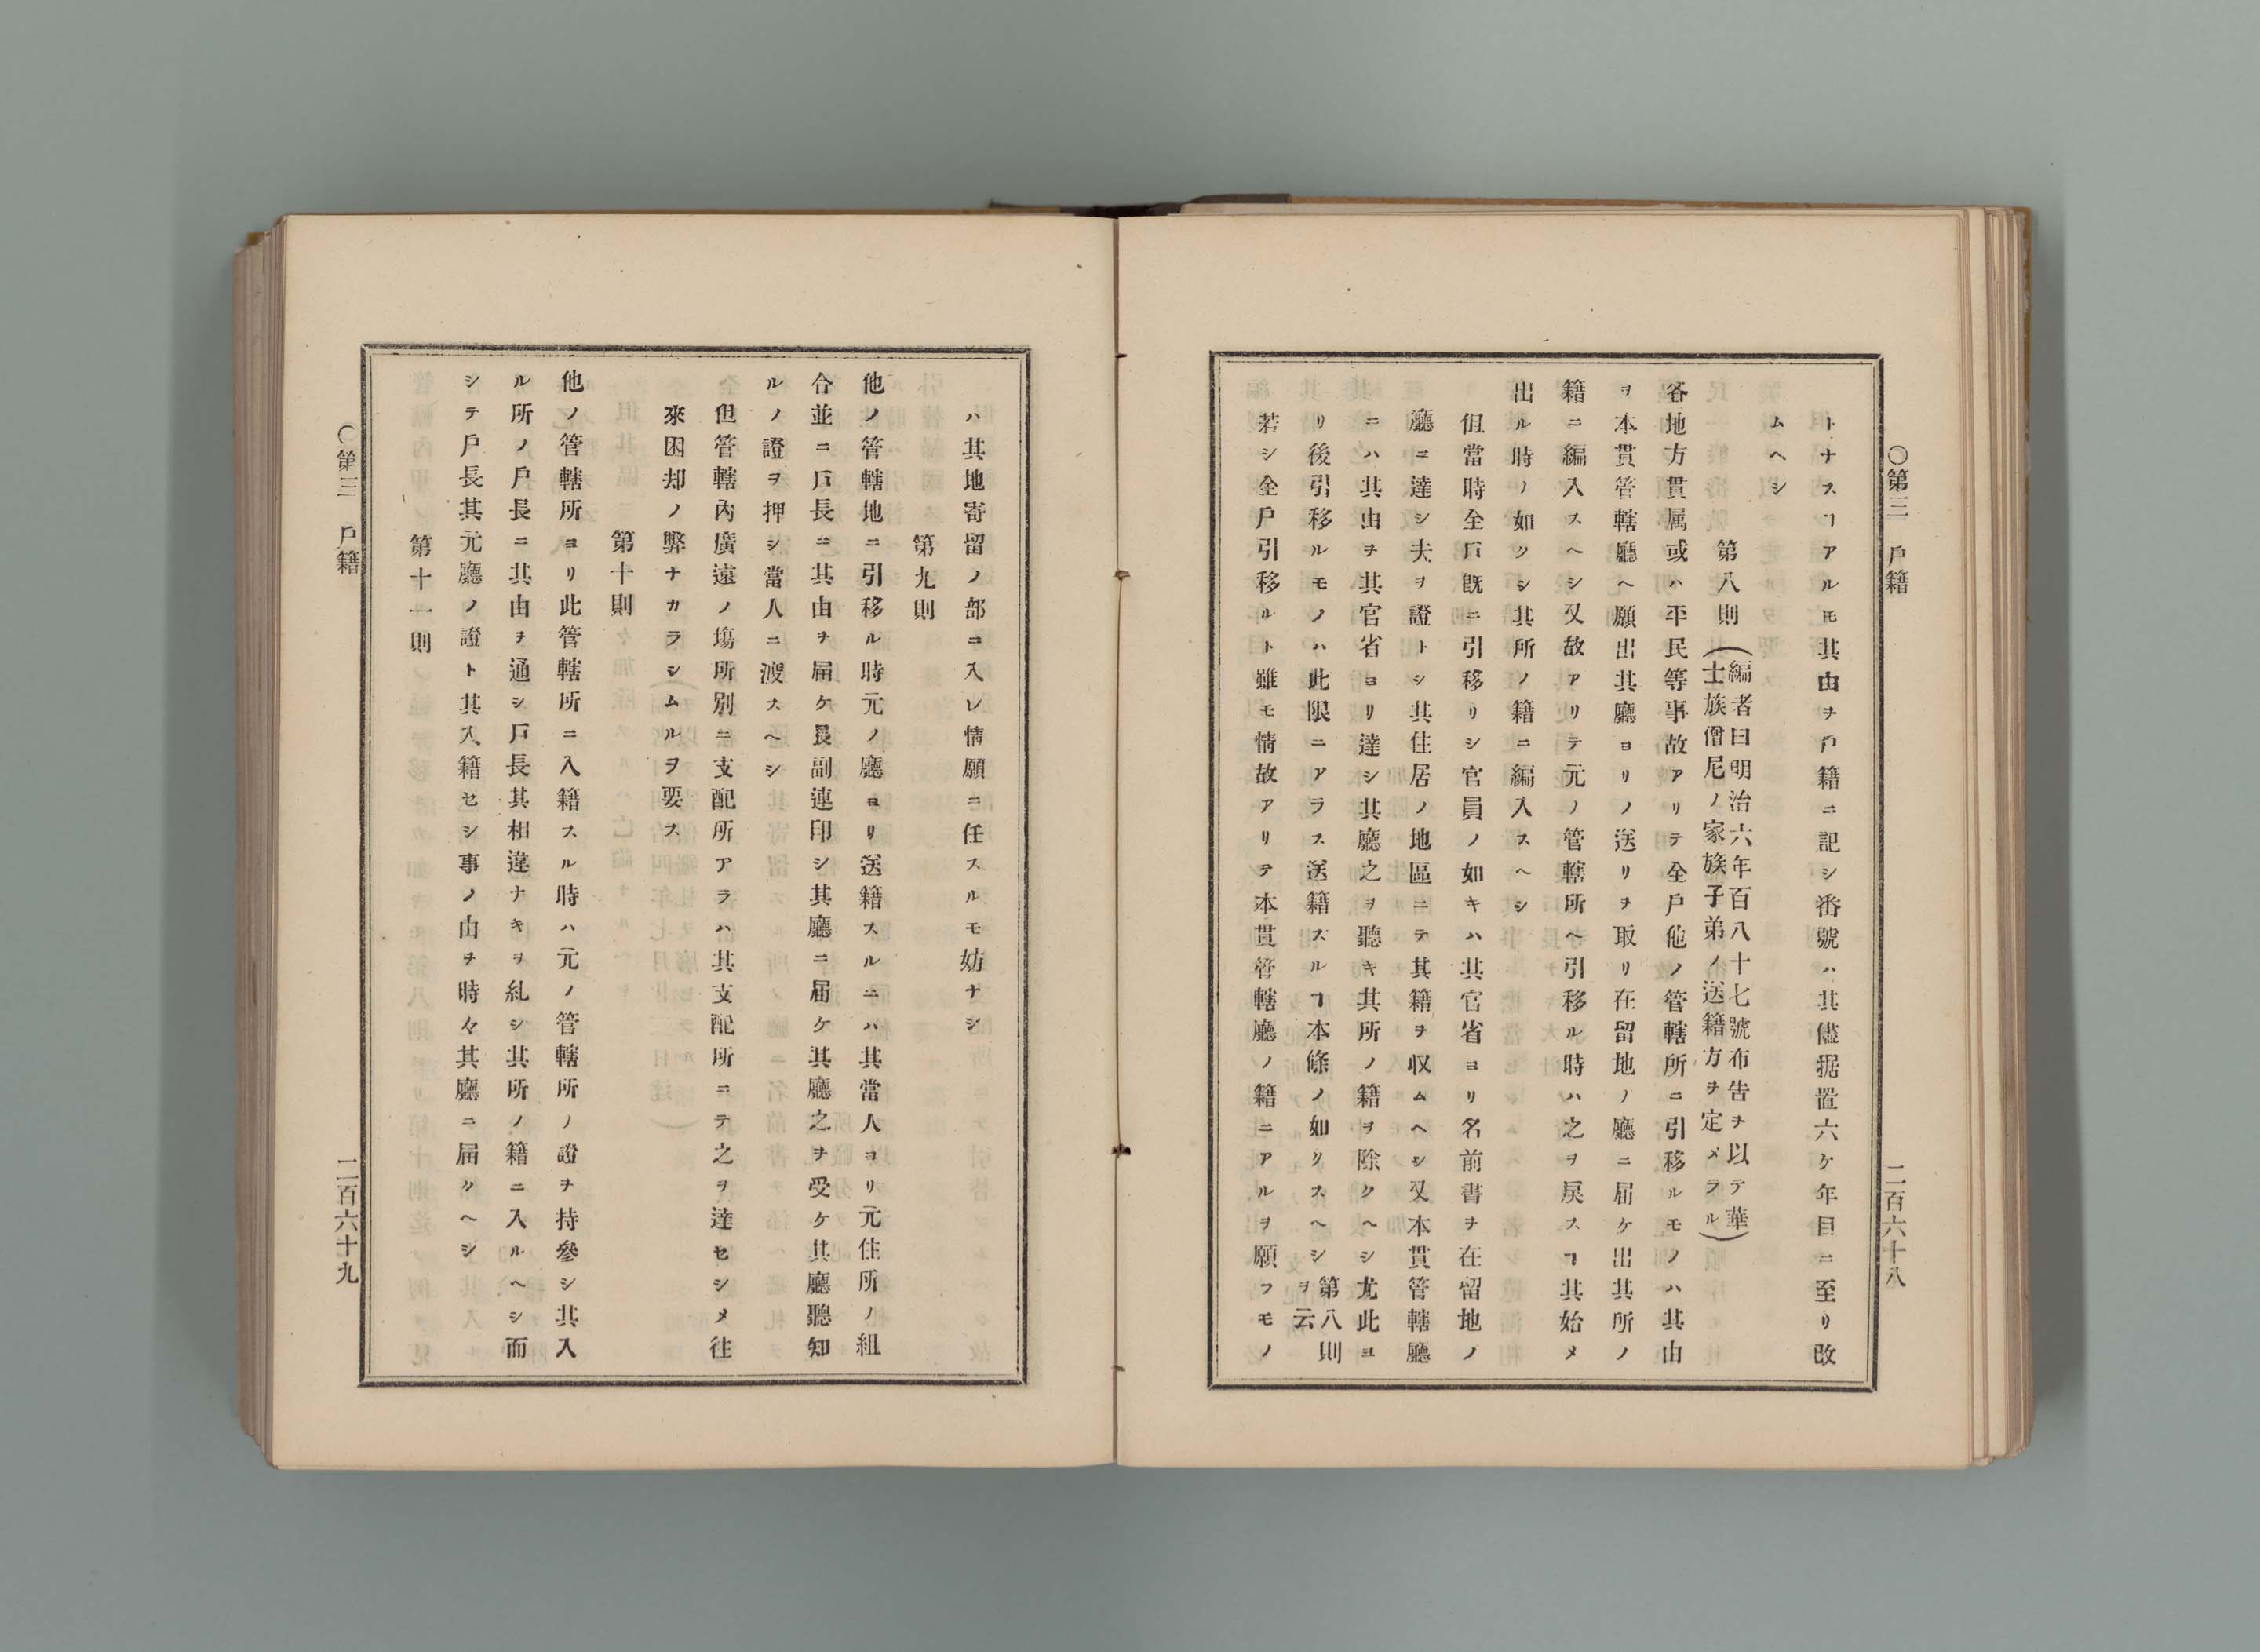 ○第三　戸籍　二百六十八
トナスヿアルモ其由ヲ戸籍ニ記シ番號ハ其儘据置六ケ年目ニ至リ改
ムヘシ
第八則（編者曰明治六年百八十七號布告ヲ以テ華
士族僧尼ノ家族子弟ノ送籍方ヲ定メラル）
各地方貫属或ハ平民等事故アリテ全戸他ノ管轄所ニ引移ルモノハ其由
ヲ本貫管轄廳ヘ願出其廳ヨリノ送リヲ取リ在留地ノ廳ニ届ケ出其所ノ
籍ニ編入スヘシ又故アリテ元ノ管轄所ヘ引移ル時ハ之ヲ戻スヿ其始メ
出ル時ノ如クシ其所ノ籍ニ編入スヘシ
但當時全戸既ニ引移リシ官員ノ如キハ其官省ヨリ名前書ヲ在留地ノ
廳ニ達シ夫ヲ證トシ其住居ノ地區ニテ其籍ヲ収ムヘシ又本貫管轄廳
ニハ其由ヲ其官省ヨリ達シ其廳之ヲ聽キ其所ノ籍ヲ除クヘシ尤此ヨ
リ後引移ルモノハ此限ニアラス送籍スルヿ本條ノ如クスヘシ第八則
ヲ云
若シ全戸引移ルト雖モ情故アリテ本貫管轄廳ノ籍ニアルヲ願フモノ
ハ其地寄留ノ部ニ入レ情願ニ任スルモ妨ナシ
第九則
他ノ管轄地ニ引移ル時元ノ廳ヨリ送籍スルニハ其當人ヨリ元住所ノ組
合並ニ戸長ニ其由ヲ届ケ長副連印シ其廳ニ届ケ其廳之ヲ受ケ其廳聽知
ルノ證ヲ押シ當人ニ渡スヘシ
但管轄內廣遠ノ塲所別ニ支配所アラハ其支配所ニテ之ヲ達セシメ往
來困却ノ弊ナカラシムルヲ要ス
第十則
他ノ管轄所ヨリ此管轄所ニ入籍スル時ハ元ノ管轄所ノ證ヲ持參シ其入
ル所ノ戸長ニ其由ヲ通シ戸長其相違ナキヲ糺シ其所ノ籍ニ入ルヘシ而
シテ戸長其元廳ノ證ト其入籍セシ事ノ由ヲ時々其廳ニ届クヘシ
第十一則
○第三　戸籍　二百六十九